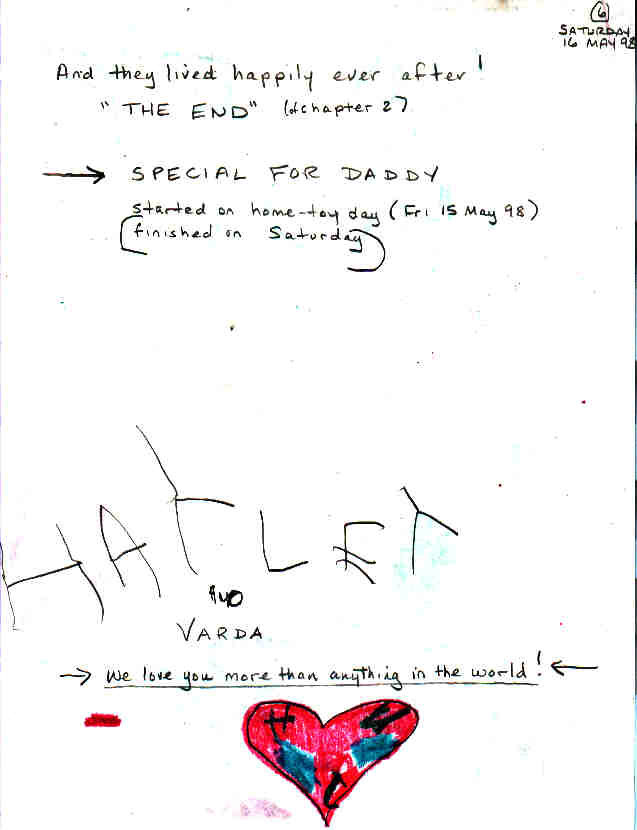 6
SATURDAY
16 MAY 98
And they lived happily ever after!
"THE END" (of chapter 2)
→ SPECIAL FOR DADDY
started on home-toy day (Fri 15 May 98)
(finished on Saturday)
HAYLEY
AND
VARDA
→ We love you more than anything in the world! ←
H
C